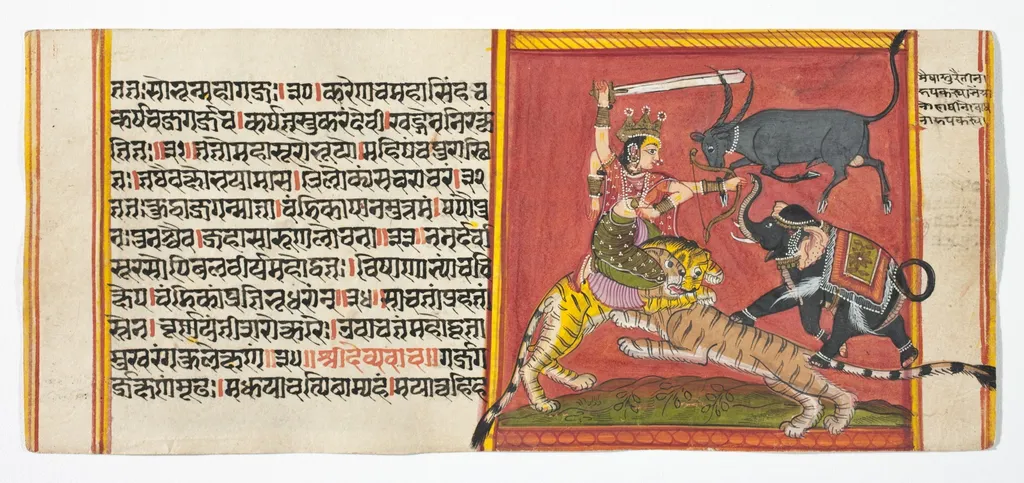 ततः सोभून्महागजः।३०। करेण च महासिंहं चं
कर्ष च जगर्ज च। कर्षतस्तु करं देवी। खड्गेन निरकृं
तत।।३१। ततो महासुरो भूयो। माहिषं वपुरास्थि
तः। तथैव क्षोभयामास। त्रैलोक्यं सचराचरं।३२
ततः क्रुद्धा जगन्माता। चंडिका पानमुत्तमं। पपौ पु
नः पुनश्चैव। जहासारुणलोचना॥३३॥ ननर्द चा
सुरः सोपि बलवीर्यमदोद्धतः। विषाणाभ्यां च चि
क्षेप। चंडिकां प्रति भूधरान्॥३४। सा च तां प्रहितां
स्तेन। चूर्णयंती शरोत्करैः। उवाच तं मदोद्धूता
मुखरागाकुलाक्षरं॥३५॥ श्रीदेव्युवाच॥ गर्ज ग
र्ज क्षणं मूढः। मधु यावत्पिबाम्यहं। मया त्वयि ह